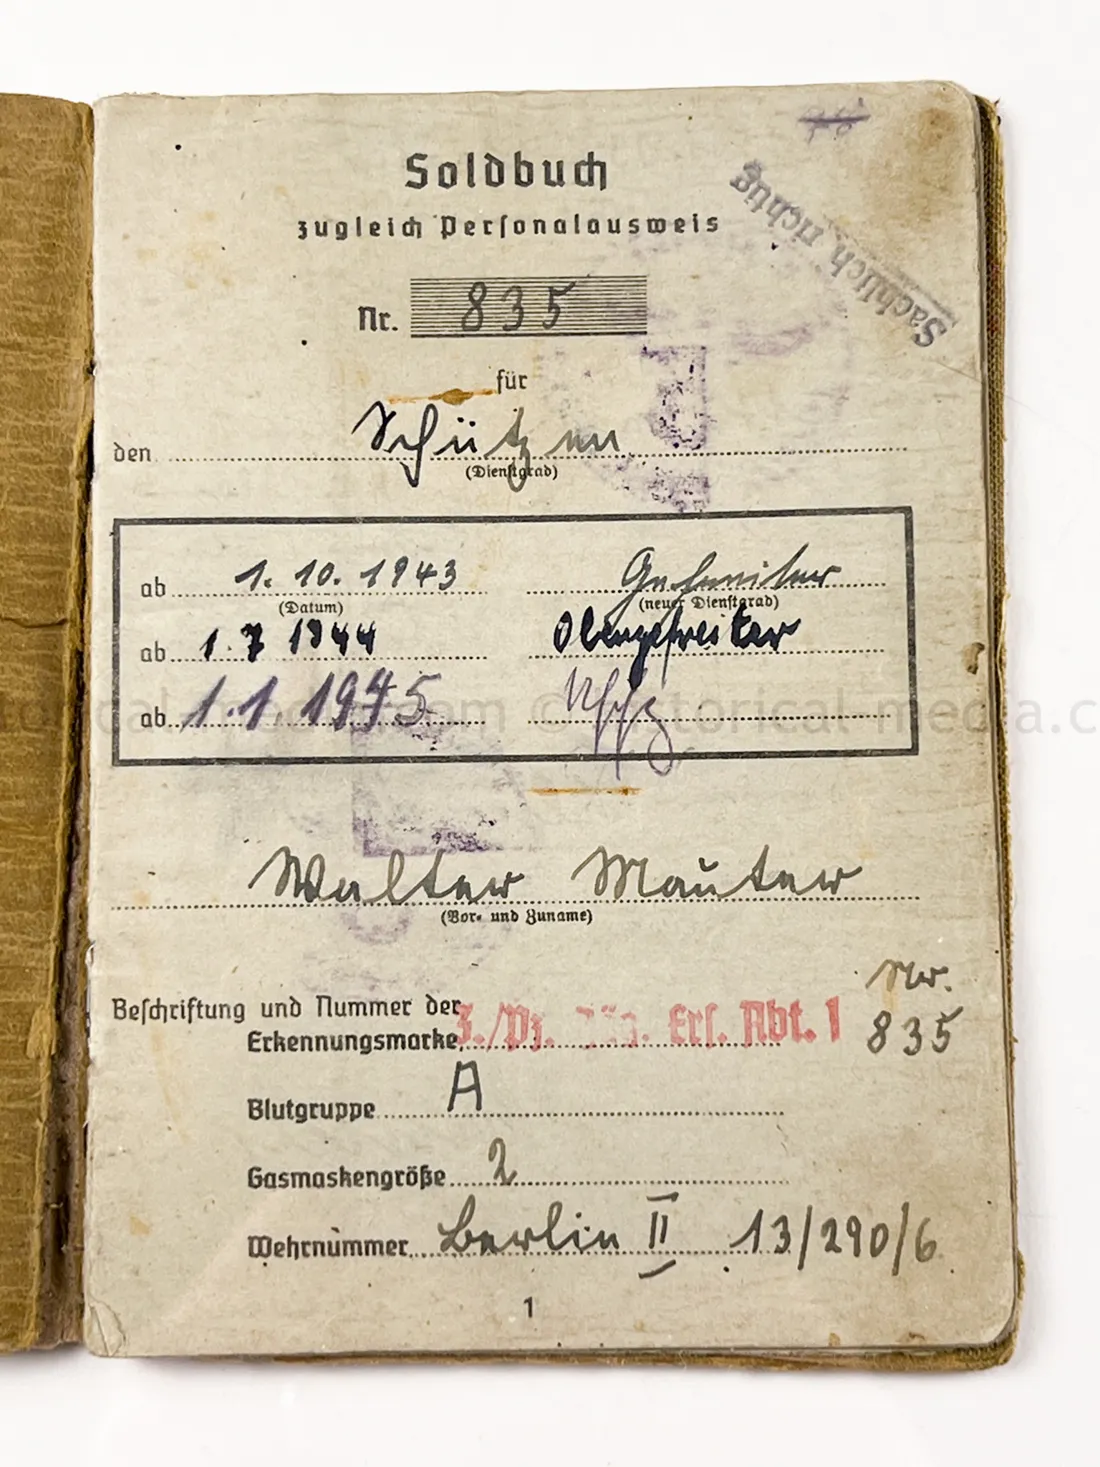 Soldbuch
zugleich Personalausweis
Sachlich richtig
Nr. 835
für
den Schützen
(Dienstgrad)
ab 1.10.1943 Gefreiter
(Datum) (neuer Dienstgrad)
ab 1.7 1944 Obergefreiter
ab 1.1.1945 Uffz
Walter Mauter
(Vor- und Zuname)
Nr.
Beschriftung und Nummer der
Erkennungsmarke 3./Pz. Jäg. Ers. Abt. 1 835
Blutgruppe A
Gasmaskengröße 2
Wehrnummer Berlin II 13/290/6
1